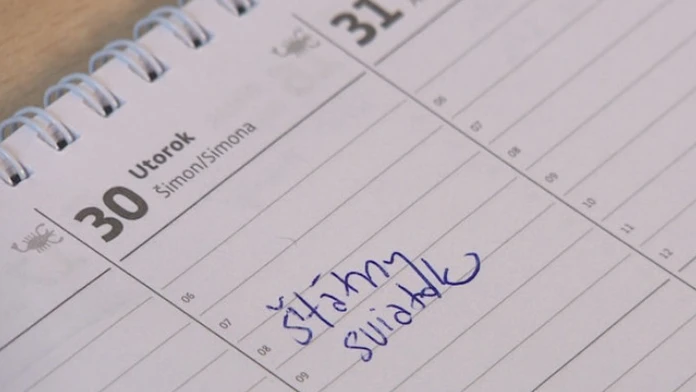 30
Utorok
Šimon/Simona
06
07
08
09
Štátny
sviatok
31
06
07
08
09
10
11
12